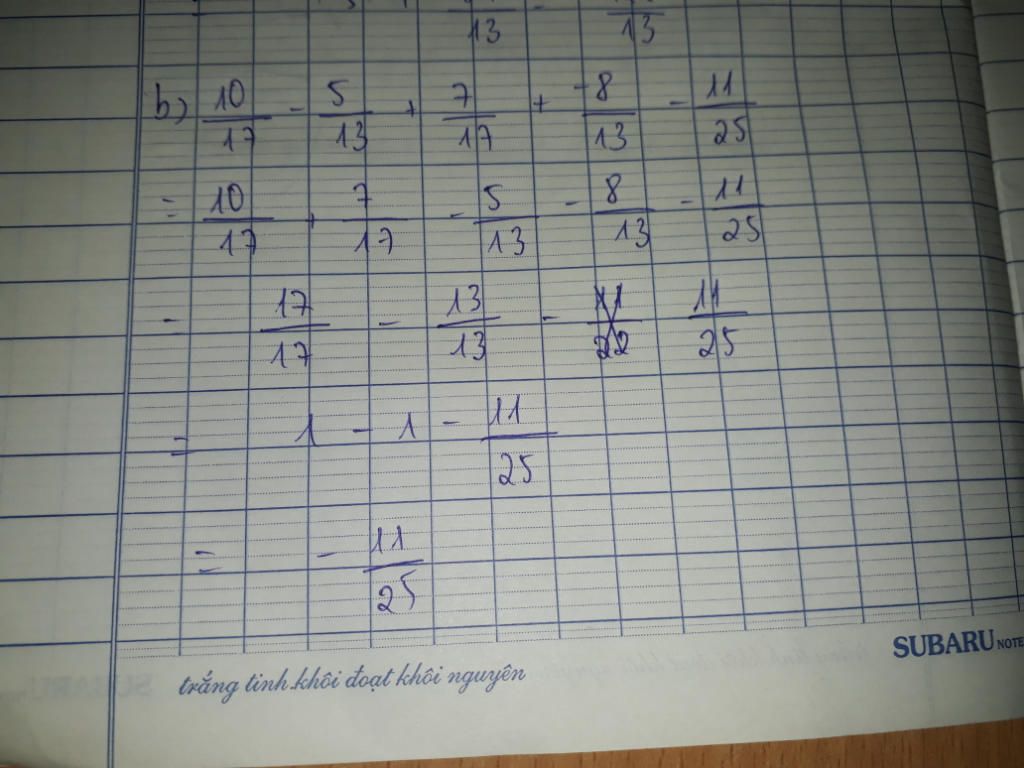 13 13
b) 10/17 - 5/13 + 7/17 + -8/13 - 11/25
= 10/17 + 7/17 - 5/13 - 8/13 - 11/25
= 17/17 - 13/13 - 11/22 11/25
= 1 - 1 - 11/25
= - 11/25
SUBARU NOTE
trắng tinh khôi đoạt khôi nguyên